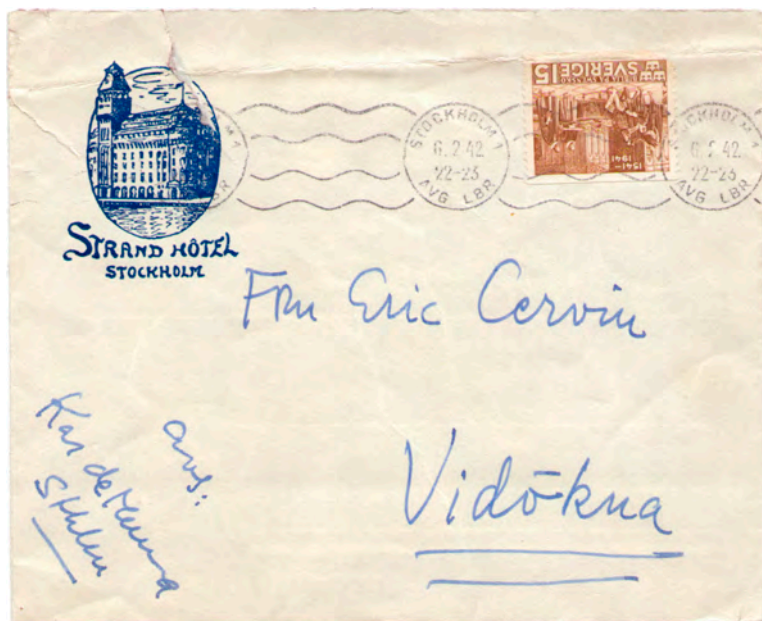 STRAND HÔTEL
STOCKHOLM
STOCKHOLM 1
6.2.42
22-23
AVG LBR
SVERIGE 15
1541-
1941
STOCKHOLM 1
6.2.42
22-23
AVG LBR
M 1
BR
Fru Eric Cervin
Vidökna
avs:
Kar de Mumma
Sthlm